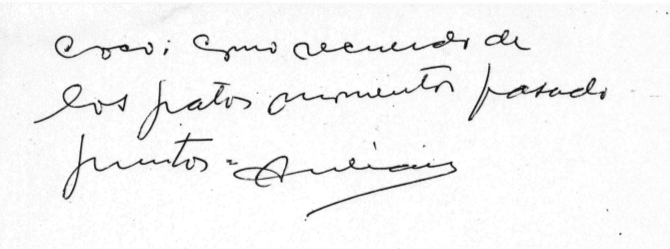 Coco: como recuerdo de
los gratos momentos pasado
juntos =